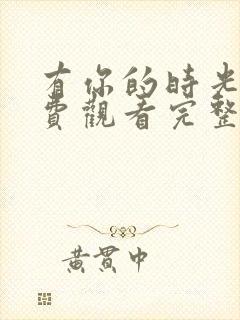 有你的時光
費觀看完整
黃貫中